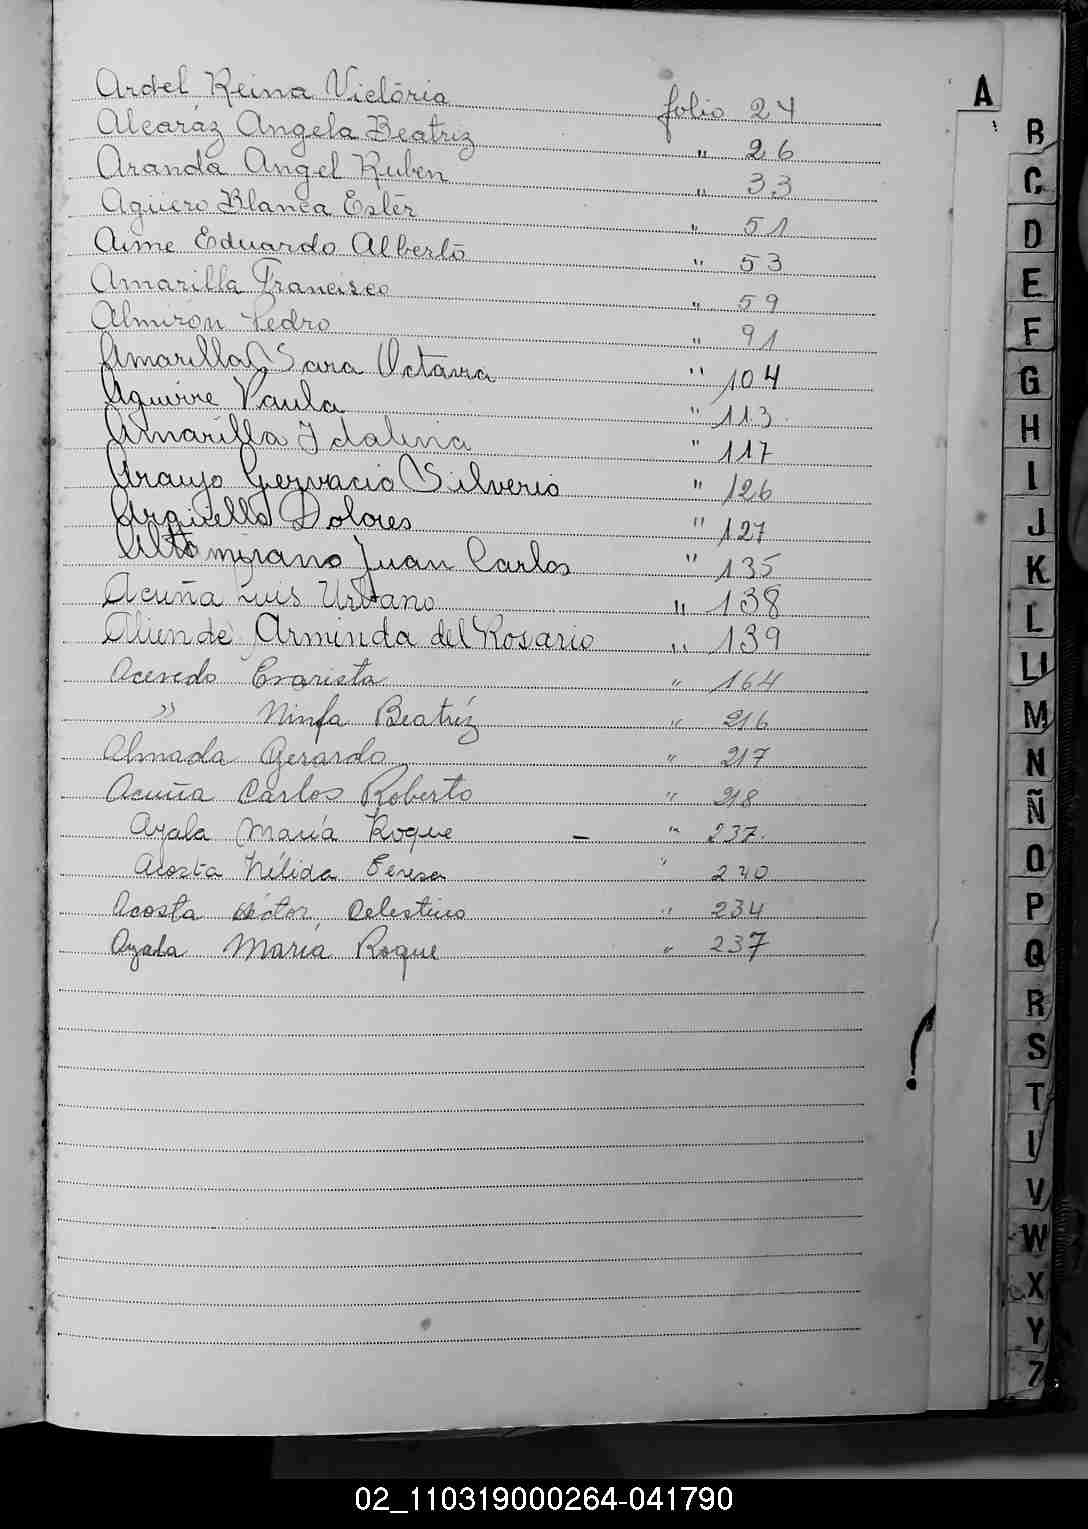 Ardel Reina Victória folio 24
Alcaráz Angela Beatriz " 26
Aranda Angel Ruben " 33
Agüero Blanca Ester " 51
Aime Eduardo Alberto " 53
Amarilla Francisco " 59
Almirón Pedro " 91
Amarilla Sara Octavia " 104
Aguirre Paula " 113
Amarilla Idalina " 117
Araujo Gervacio Silverio " 126
Arguello Dolores " 127
Altamirano Juan Carlos " 135
Acuña Luis Urbano " 138
Aliende Arminda del Rosario " 139
Acevedo Evarista " 164
" Ninfa Beatríz " 216
Almada Gerardo " 217
Acuña Carlos Roberto " 218
Ayala María Roque - " 237
Acosta Nélida Teresa " 230
Acosta Héctor Celestino " 234
Ayala María Roque " 237
A
B
C
D
E
F
G
H
I
J
K
L
Ll
M
N
Ñ
O
P
Q
R
S
T
U
V
W
X
Y
Z
02_110319000264-041790